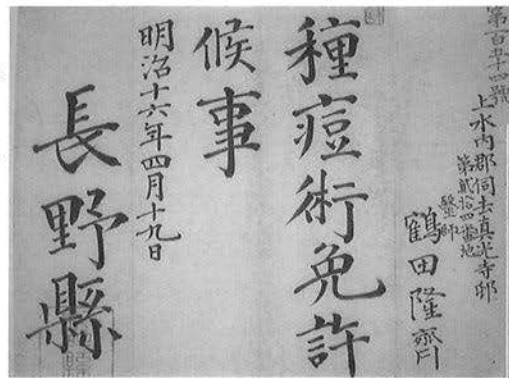 第百五十四號
上水内郡伺去真光寺邨
第貳拾四番地
醫師
鶴田隆齊
種痘術免許
候事
明治十六年四月十九日
長野縣